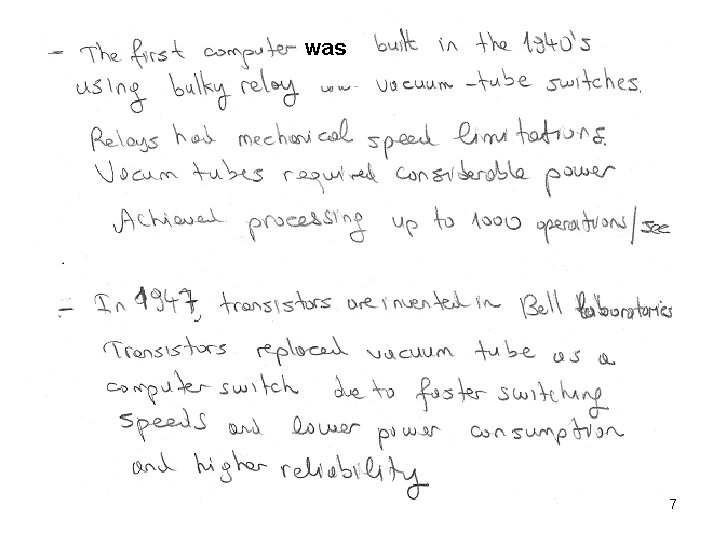 - The first computer was built in the 1940's
using bulky relay vacuum-tube switches.
Relays had mechanical speed limitations.
Vacum tubes required considerable power
Achieved processing up to 1000 operations/sec
- In 1947, transistors are invented in Bell laboratories
Transistors replaced vacuum tube as a
computer switch due to faster switching
speeds and lower power consumption
and higher reliability
7